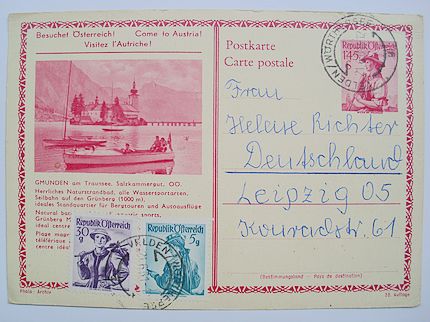 Besuchet Österreich! Come to Austria!
Visitez l'Autriche!
GMUNDEN am Traunsee, Salzkammergut, OÖ.
Herrliches Naturstrandbad, alle Wassersportarten,
Seilbahn auf den Grünberg (1000 m),
ideales Standquartier für Bergtouren und Autoausflüge
Natural
Grünberg
ideal centre
Plage
ideal
Photo: Archiv
Republik Österreich
30 g
Republik Österreich
5 g
VELDEN
Postkarte
Carte postale
Republik Österreich
1.45
VELDEN
Frau
Heleise Richter
Deutschland
Leipzig O5
Konradstr. 61
(Bestimmungsland Pays de destination)
22. Auflage